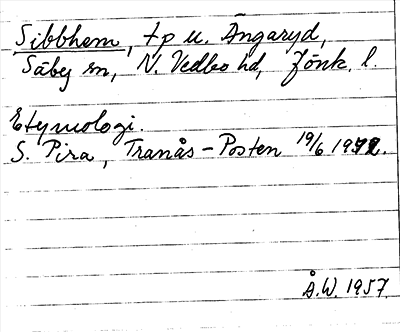 Sibbhem, tp u. Ängaryd,
Säby sn, N. Vedbo hd, Jönk. l.
Etymologi.
S. Pira, Tranås-Posten 19/6
Å.W. 1957